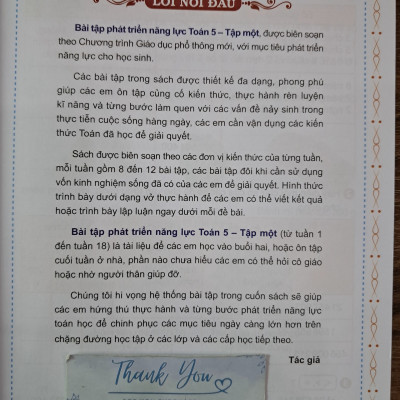 LỜI NÓI ĐẦU
Bài tập phát triển năng lực Toán 5 – Tập một, được biên soạn
theo Chương trình Giáo dục phổ thông mới, với mục tiêu phát triển
năng lực cho học sinh.
Các bài tập trong sách được thiết kế đa dạng, phong phú
giúp các em ôn tập củng cố kiến thức, thực hành rèn luyện
kĩ năng và từng bước làm quen với các vấn đề nảy sinh trong
thực tiễn cuộc sống hàng ngày, các em cần vận dụng các kiến
thức Toán đã học để giải quyết.
Sách được biên soạn theo các đơn vị kiến thức của từng tuần,
mỗi tuần gồm 8 đến 12 bài tập, các bài tập đôi khi cần sử dụng
vốn kinh nghiệm sống đã có của các em để giải quyết. Hình thức
trình bày dưới dạng vở thực hành để các em có thể viết kết quả
hoặc trình bày lập luận ngay dưới mỗi đề bài.
Bài tập phát triển năng lực Toán 5 – Tập một (từ tuần 1
đến tuần 18) là tài liệu để các em học vào buổi hai, hoặc ôn tập
cuối tuần ở nhà, phần nào chưa hiểu các em có thể hỏi cô giáo
hoặc nhờ người thân giúp đỡ.
Chúng tôi hi vọng hệ thống bài tập trong cuốn sách sẽ giúp
các em hứng thú thực hành và từng bước phát triển năng lực
toán học để chinh phục các mục tiêu ngày càng lớn hơn trên
chặng đường học tập ở các lớp và các cấp học tiếp theo.
Tác giả
Thank You